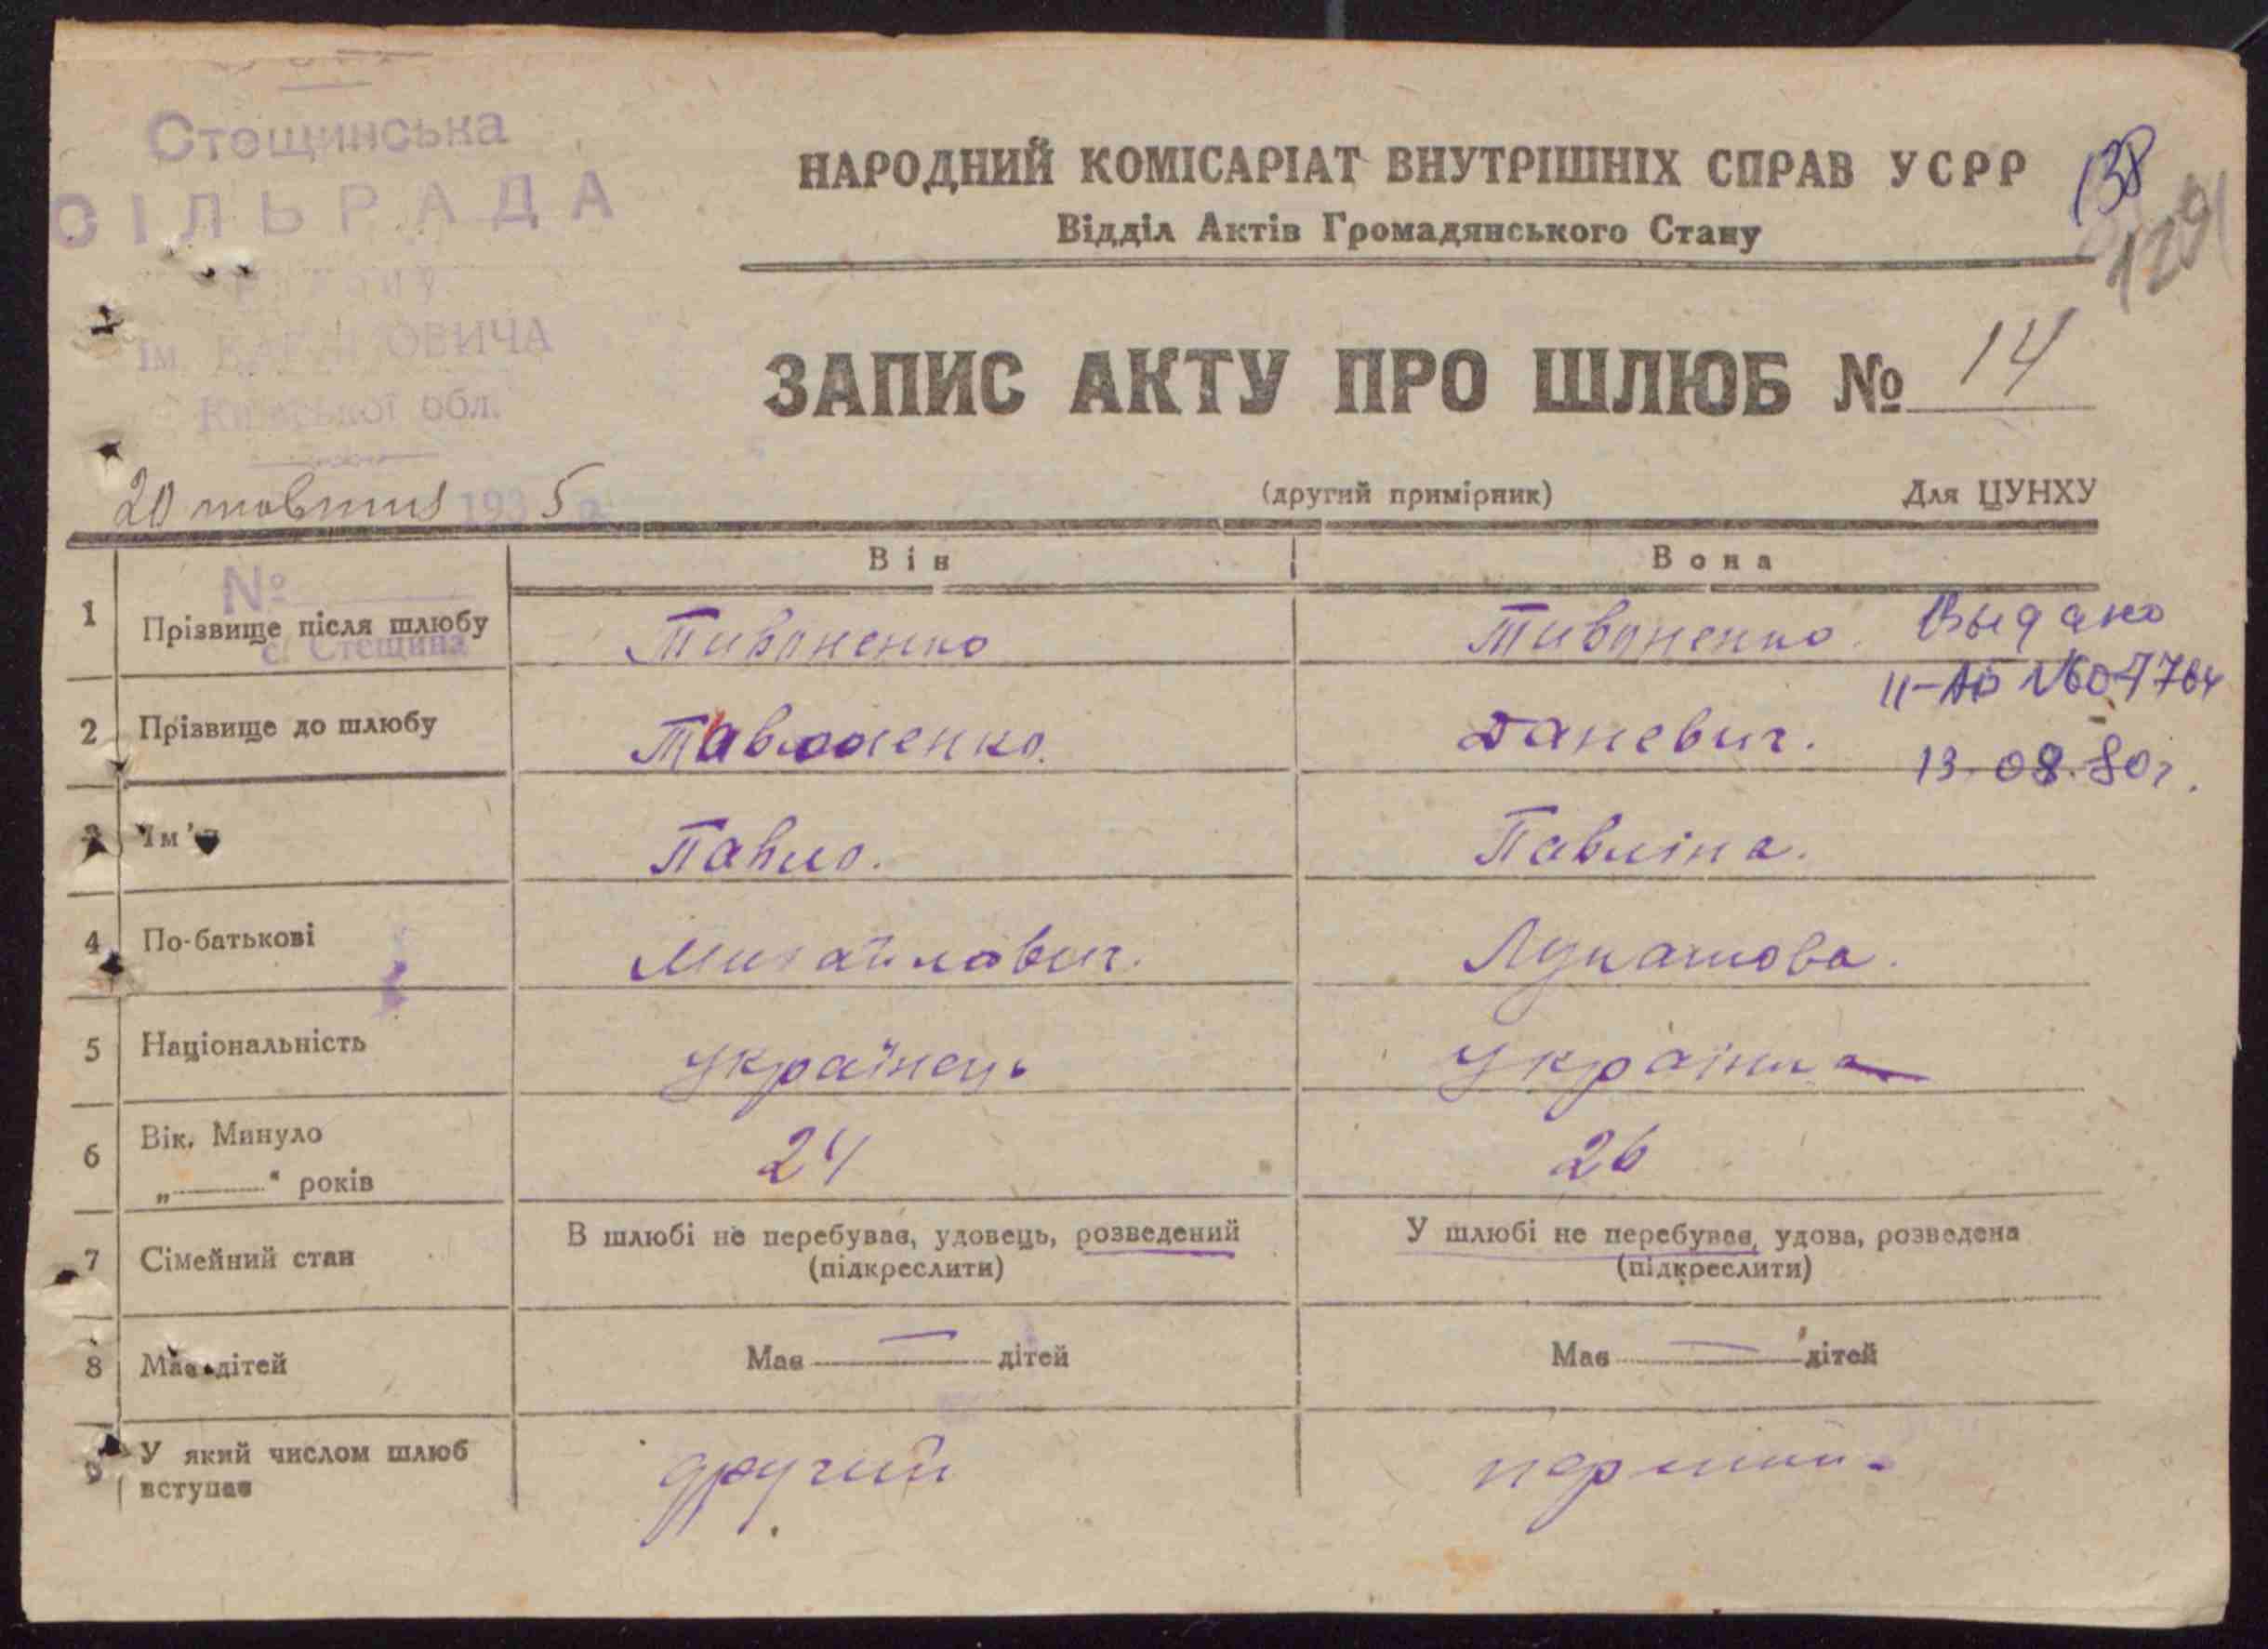 Стещинська
СІЛЬРАДА
району
ім. КАГАНОВИЧА
Київської обл.
20 жовтня 1935 р.
НАРОДНИЙ КОМІСАРІАТ ВНУТРІШНІХ СПРАВ УСРР
Відділ Актів Громадянського Стану
138
129
ЗАПИС АКТУ ПРО ШЛЮБ № 14
(другий примірник) Для ЦУНХУ
Він Вона
№
с. Стещина
1 Прізвище після шлюбу Тивоненко Тивоненко.
Выдано
ІІ-АБ №
13.08.80г.
2 Прізвище до шлюбу Даневич.
3 Ім'я Павло. Павліна.
4 По-батькові Михайлович. Лукашова.
5 Національність Українець Українка
6 Вік. Минуло 24 26
„ “ років
7 Сімейний стан В шлюбі не перебував, удовець, розведений У шлюбі не перебував, удова, розведена
(підкреслити) (підкреслити)
8 Має дітей Має — дітей Має — дітей
9 У який числом шлюб вступає другий перший.